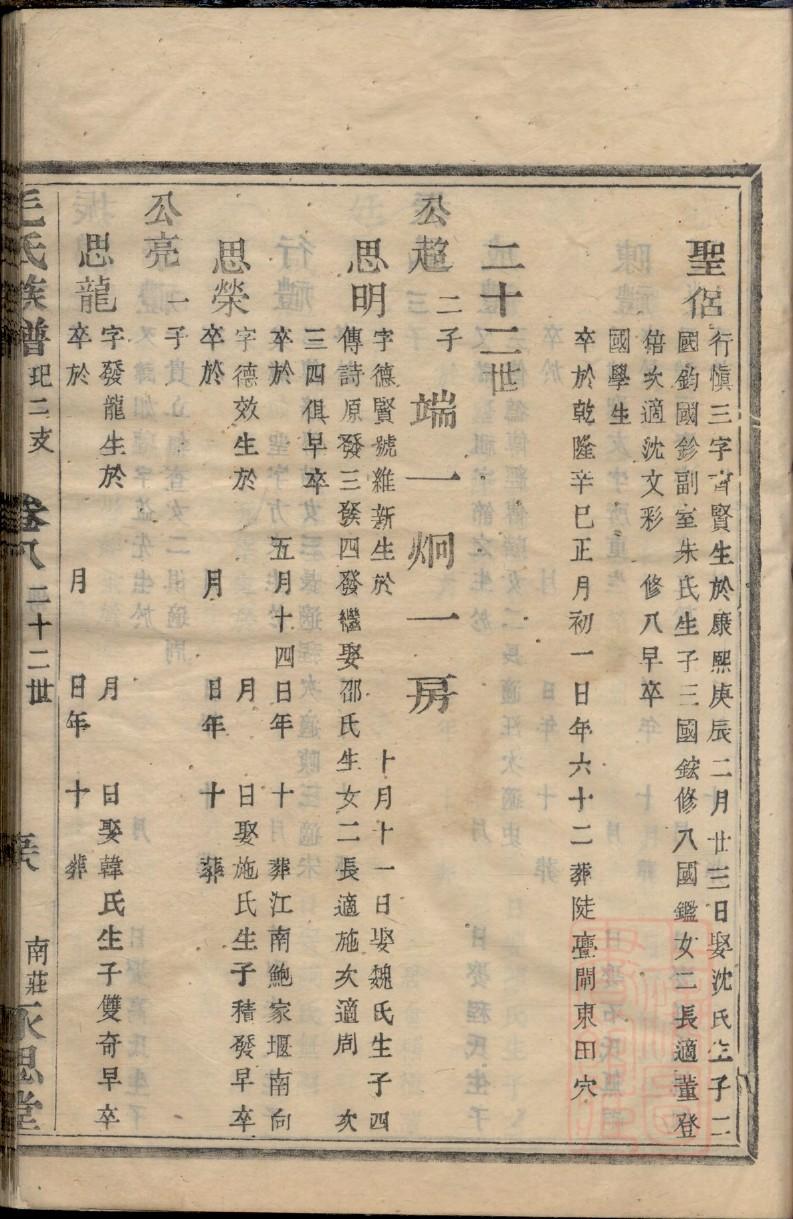 聖侶
行慎三字肯賢生於康熙庚辰二月廿三日娶沈氏生子二
國鈞國鉁副室朱氏生子三國鋐修八國鑑女二長適董登
錇次適沈文彩 修八早卒
國學生
卒於乾隆辛巳正月初一日年六十二葬陡亹閘東田穴
二十二世
公趨二子 端一炯一房
思明
字德賢號維新生於 十月十一日娶魏氏生子四
傳詩原發三發四發繼娶邵氏生女二長適施次適周 次
三四俱早卒
卒於 五月十四日年 十 葬江南鮑家堰南向
思榮
字德效生於 月 日娶施氏生子積發早卒
卒於 月 日年 十 葬
公亮一子
思龍
字發龍生於 月 日娶韓氏生子雙奇早卒
卒於 月 日年 十 葬
毛氏族譜 玘二支 卷八 二十二世 南莊永思堂